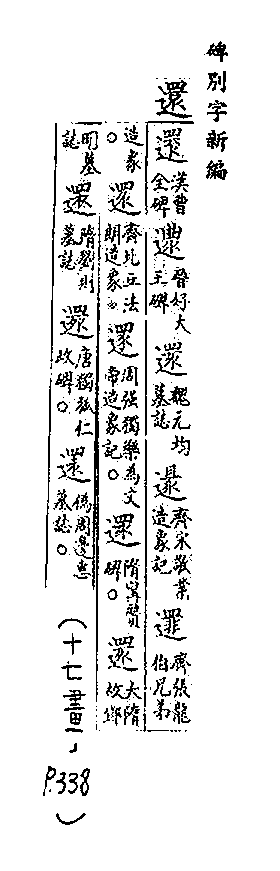 碑別字新編
還
還漢曹全碑還晉好大王碑還魏元均墓誌還齊宋敬業造象記還齊張龍伯兄弟
造象。還齊比丘法朗造象。還周强獨樂為文帝造象記。還隋甯贊碑。還大隋
墓誌還隋墓誌還唐獨孤仁政碑。還偽周邊惠墓誌。(十七畫,P.338)